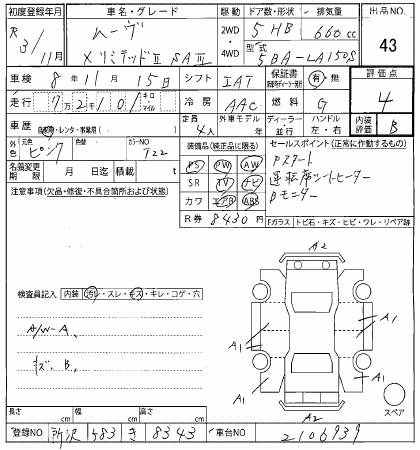 初度登録年月 車名・グレード 駆動 ドア数・形状 排気量 出品NO.
R 3/11月 ムーヴ 2WD 5 HB 660cc 43
XリミテッドⅡ SAⅢ 4WD 型式 5BA-LA150S
車検 8年11月15日 シフト IAT 保証書 有・無 評価点
走行 7万2千101 キロ・マイル 冷房 AAC 燃料 G 4
車歴 自家用・レンタ・事業用( ) 定員 4人 外車モデル 年 ディーラー 並行 ハンドル 左・右 内装評価 B
外色 元色 ピンク 色替 カラーNO T22 装備品(純正品に限る) セールスポイント(正常に作動するもの)
名義変更期限 月 日迄 積載 t PS PW AW Pスタート
注意事項(欠品・修復・不具合箇所および状態) SR TV ナビ 運転席シートヒーター
カワ エアB ABS Bモニター
R券 8430円 Fガラス トビ石・キズ・ヒビ・ワレ・リペア跡
A2
検査員記入 内装 汚レ・スレ・キズ・キレ・コゲ・穴
A/W-A
キズ、B
A1 A1
A1 A1
スペア
A2
長さ cm 幅 cm 高さ cm
登録NO 所沢 583 き 8343 車台NO 2106939